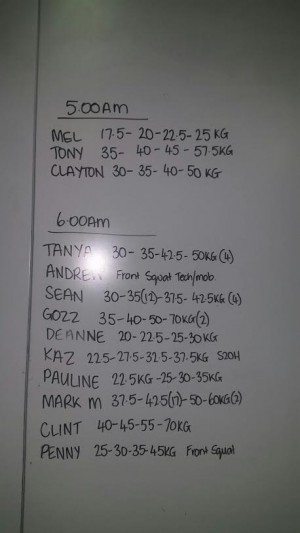 5.00AM
MEL 17.5-20-22.5-25KG
TONY 35-40-45-57.5KG
CLAYTON 30-35-40-50KG
6.00AM
TANYA 30-35-42.5-50KG(4)
ANDREW Front Squat Tech/mob.
SEAN 30-35(12)-37.5-42.5KG(4)
GOZZ 35-40-50-70KG(2)
DEANNE 20-22.5-25-30KG
KAZ 22.5-27.5-32.5-37.5KG S2OH
PAULINE 22.5KG-25-30-35KG
MARK M 37.5-42.5(17)-50-60KG(2)
CLINT 40-45-55-70KG
PENNY 25-30-35-45KG Front Squat